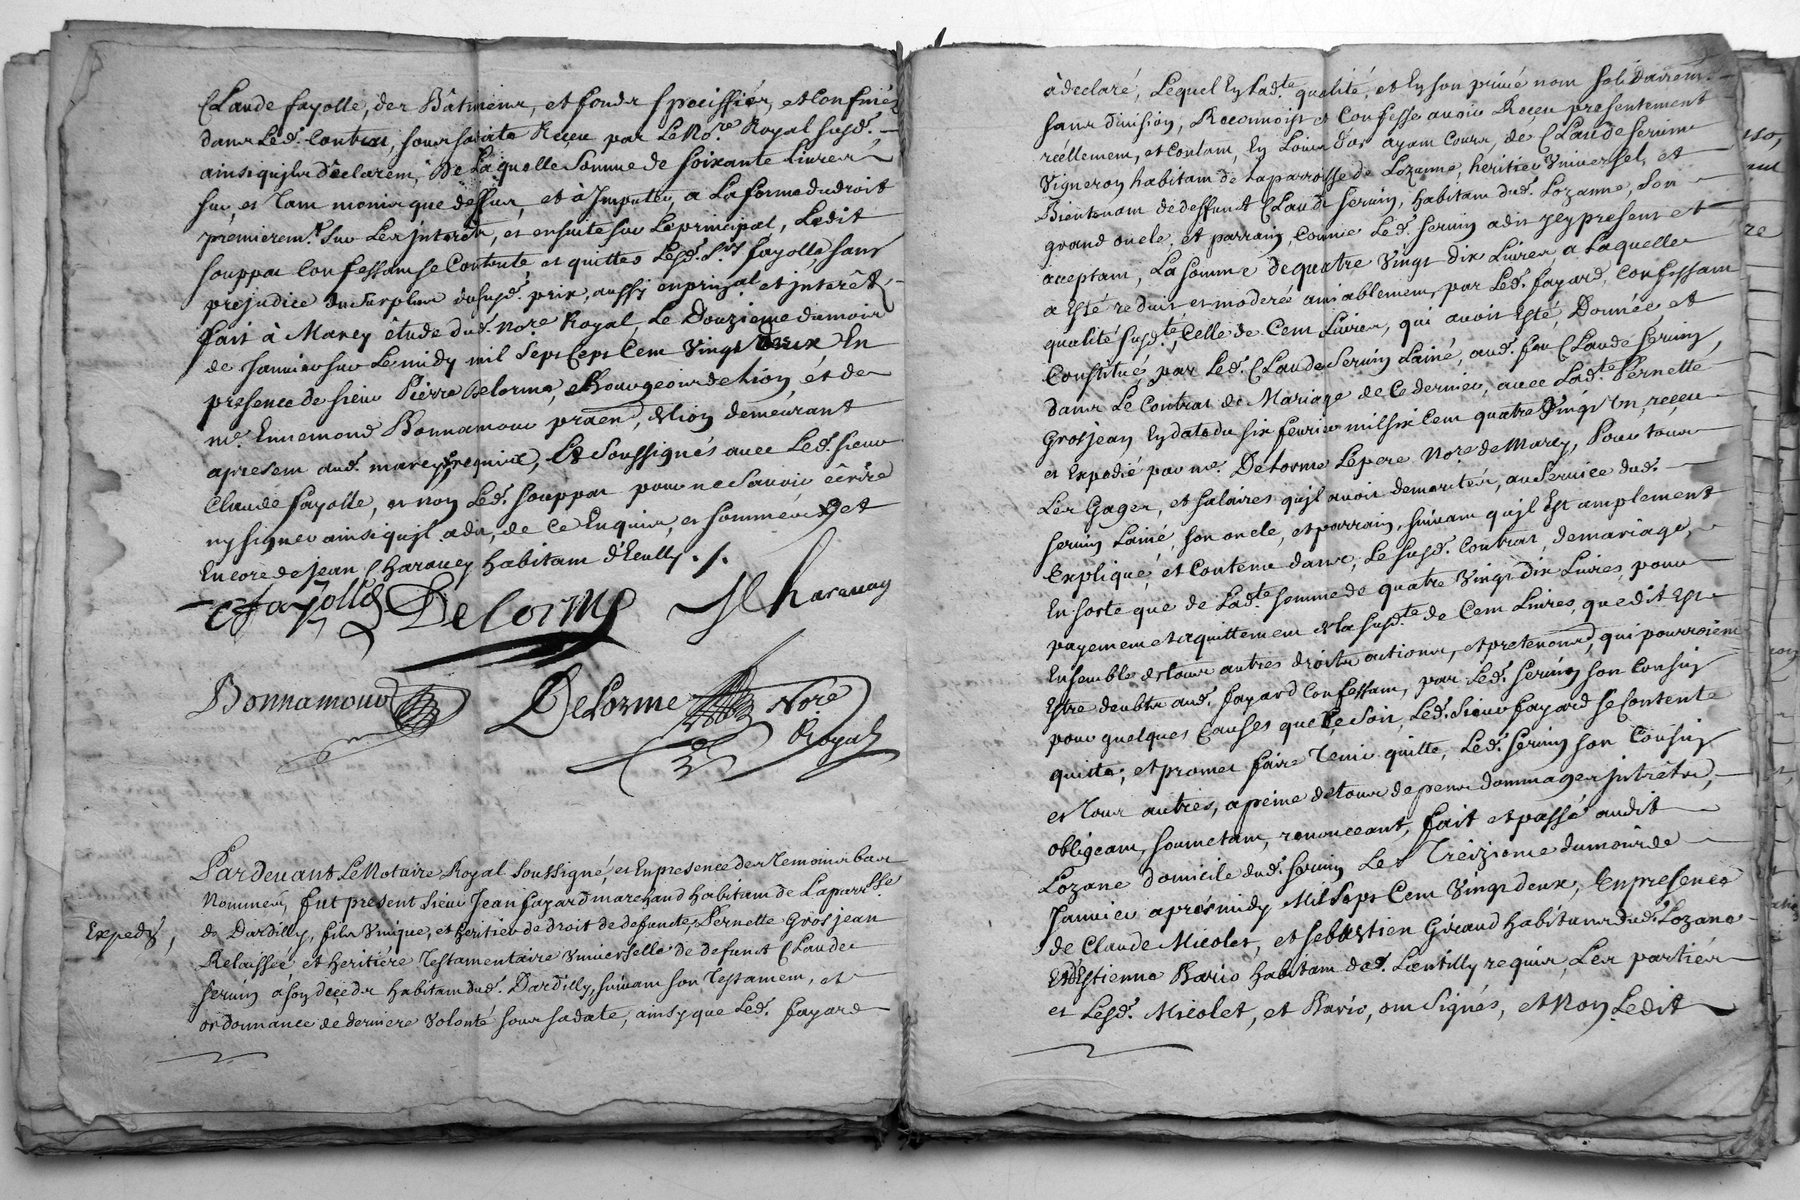 Claude fayolle, des Bâtimens, et fonds speciffiés, et Confinés
dans Led. Contrat, sous sa date Receu par Le No.re Royal susd.
ainsi quils déclarent, De Laquelle Somme de soixante Livres
sur, et Tant moins que dessus, et à Imputer, a La forme du droit
premierem.t sur Les interets, et ensuite sur Le principal, Ledit
souppat Confessant se Contente, et quittes Lesd. S.rs fayolle, sans
prejudice du surplus dususd. prix, aussy en prinçal et interêts,
fait à Marcy étude dud. No.re Royal, Le Douzieme du mois
de Janvier sur Le midy mil Sept Cent Vingt deux En
presence de sieur Pierre Delorme, Bourgeois de Lion, et de
me. Ennemond Bonnamour praen, de Lion demeurant
apresent aud. marcy, requis, Et Soussignés avec Led. sieur
Claude fayolle, et non Led. Souppat pour ne Savoir écrire
ny signer ainsi quil a dit, de Ce Enquis, et sommé, et
Encore de jean Charavey habitant d'Ecully ./.
C fayolle Delorme J Charavay
Bonnamour Delorme No.re
Royal
Pardevant Le Notaire Royal Soussigné, et En presence des Temoins bas
Nommés, fut present Sieur Jean fayard marchand habitant de La parr.sse
Expedié,
de Dardilly, fils Vnique, et heritier de droit de defuncte, Pernette Grosjean
Relaissée, et heritiére Testamentaire Vniverselle de defunct Claude
servin a son deçeds habitant dud. Dardilly, suivant son Testament, et
ordonnance de derniere Volonté sous sa date, ainsy que Led. fayard
à declaré, Lequel En Lad.te qualité, et En son privé nom solidairem.t
sans division, Reconnoist et Confesse avoir Receu presentement
réellement, et Contant, En Louis d'or ayant Cours, de Claude servin
Vigneron habitant de La parroisse de Lozanne, heritier Vniversel, et
Bientenant de deffunt Claude Servin, habitant dud. Lozanne, son
grand oncle, et parrain, Comme Led. servin a dit icy present et
aceptant, La somme de quatre Vingt dix Livres a Laquelle
a Esté reduit et moderée amiablement, par Led. fayard, Confessant
qualité susd.te, Celle de Cent Livres, qui avoit Esté Donnée, et
Constitué par Led. Claude Servin Lainé, aud. feu Claude Servin
dans Le Contrat de Mariage de Ce dernier, avec Lad.te Pernette
Grosjean En date du six fevrier mil six Cent quatre Vingt Un, reçeu
et Expedié par me. Delorme Le pere No.re de Marcy, Pour tous
Les Gages, et salaires quil avoit demerités, au service dud.
servin Lainé, son oncle, et parrain, suivant quil Est amplement
Expliqué, et Contenu dans, Le susd. Contrat, de mariage,
En sorte que de Lad.te somme de quatre Vingt Dix Livres, pour
payement et aquittement de La susd.te de Cent Livres, que dit Est
Ensemble de tous autres droits actions, et pretentions, qui pourroient
Estre deubts aud. fayard Confessant, par Led. Servin son Cousin
pour quelques Causes que Ce soit, Led. Sieur fayard se Contente
quitte, et promet faire Tenir quitte, Led. servin son Cousin
et Tous autres, a peine de tous depens dommages intrêts,
obligeant, soumetant, renonceant, fait et passé audit
Lozane domicile dud. servin Le Treizieme du mois de
Janvier aprés midy Mil Sept Cent Vingt deux, En presence
de Claude Nicolet, et sebastien Giraud habitants dud. Lozane
Et d'Estienne Bario habitant dud. Lentilly requis, Les parties
et Lesd. Nicolet, et Bario, ont Signés, et Non Ledit